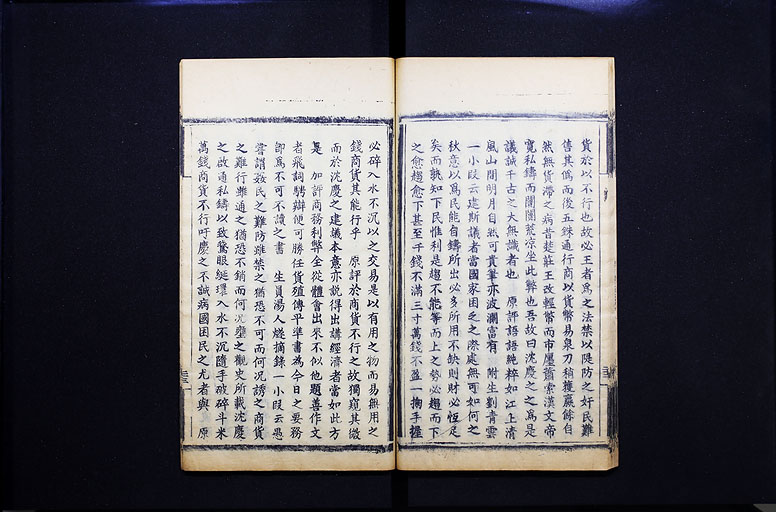 貨於以不行也故必王者爲之法禁以隄防之奸民難
售其僞而後五銖通行商以貨幣易泉刀稍獲贏餘自
然無貨滯之病昔楚莊王改輕幣而市廛蕭索漢文帝
寬私鑄而闤闠荒凉坐此弊也吾故曰沈慶之之爲是
議誠千古之大無識者也 原評語語純粹如江上清
風山間明月自然可貴筆亦波瀾富有 附生劉青雲
一小段云建斯議者當國家困乏之際處無可如何之
秋意以爲民能自鑄所出必多所用不缺則財必恆足
矣而孰知下民惟利是趨不能等而上之勢必趨而下
之愈趨愈下甚至千錢不滿三寸萬錢不盈一掬手握
必碎入水不沉以之交易是以有用之物而易無用之
錢商貨其能行乎 原評於商貨不行之故獨窺其微
而於沈慶之建議本意亦説得出講經濟者當如此方
是 加評商務利弊全從體會出來不似他題善作文
者飛詞騁辯便可勝任貨殖傳平準書爲今日之要務
卽爲不可不讀之書 生員湯人燧摘錄一小段云愚
嘗謂姦民之難防雖禁之猶恐不可而何况誘之商貨
之難行雖通之猶恐不銷而何况壅之觀史所載沈慶
之啟通私鑄以致鵞眼綖環入水不沉隨手破碎斗米
萬錢商貨不行吁慶之不誠病國困民之尤者與 原